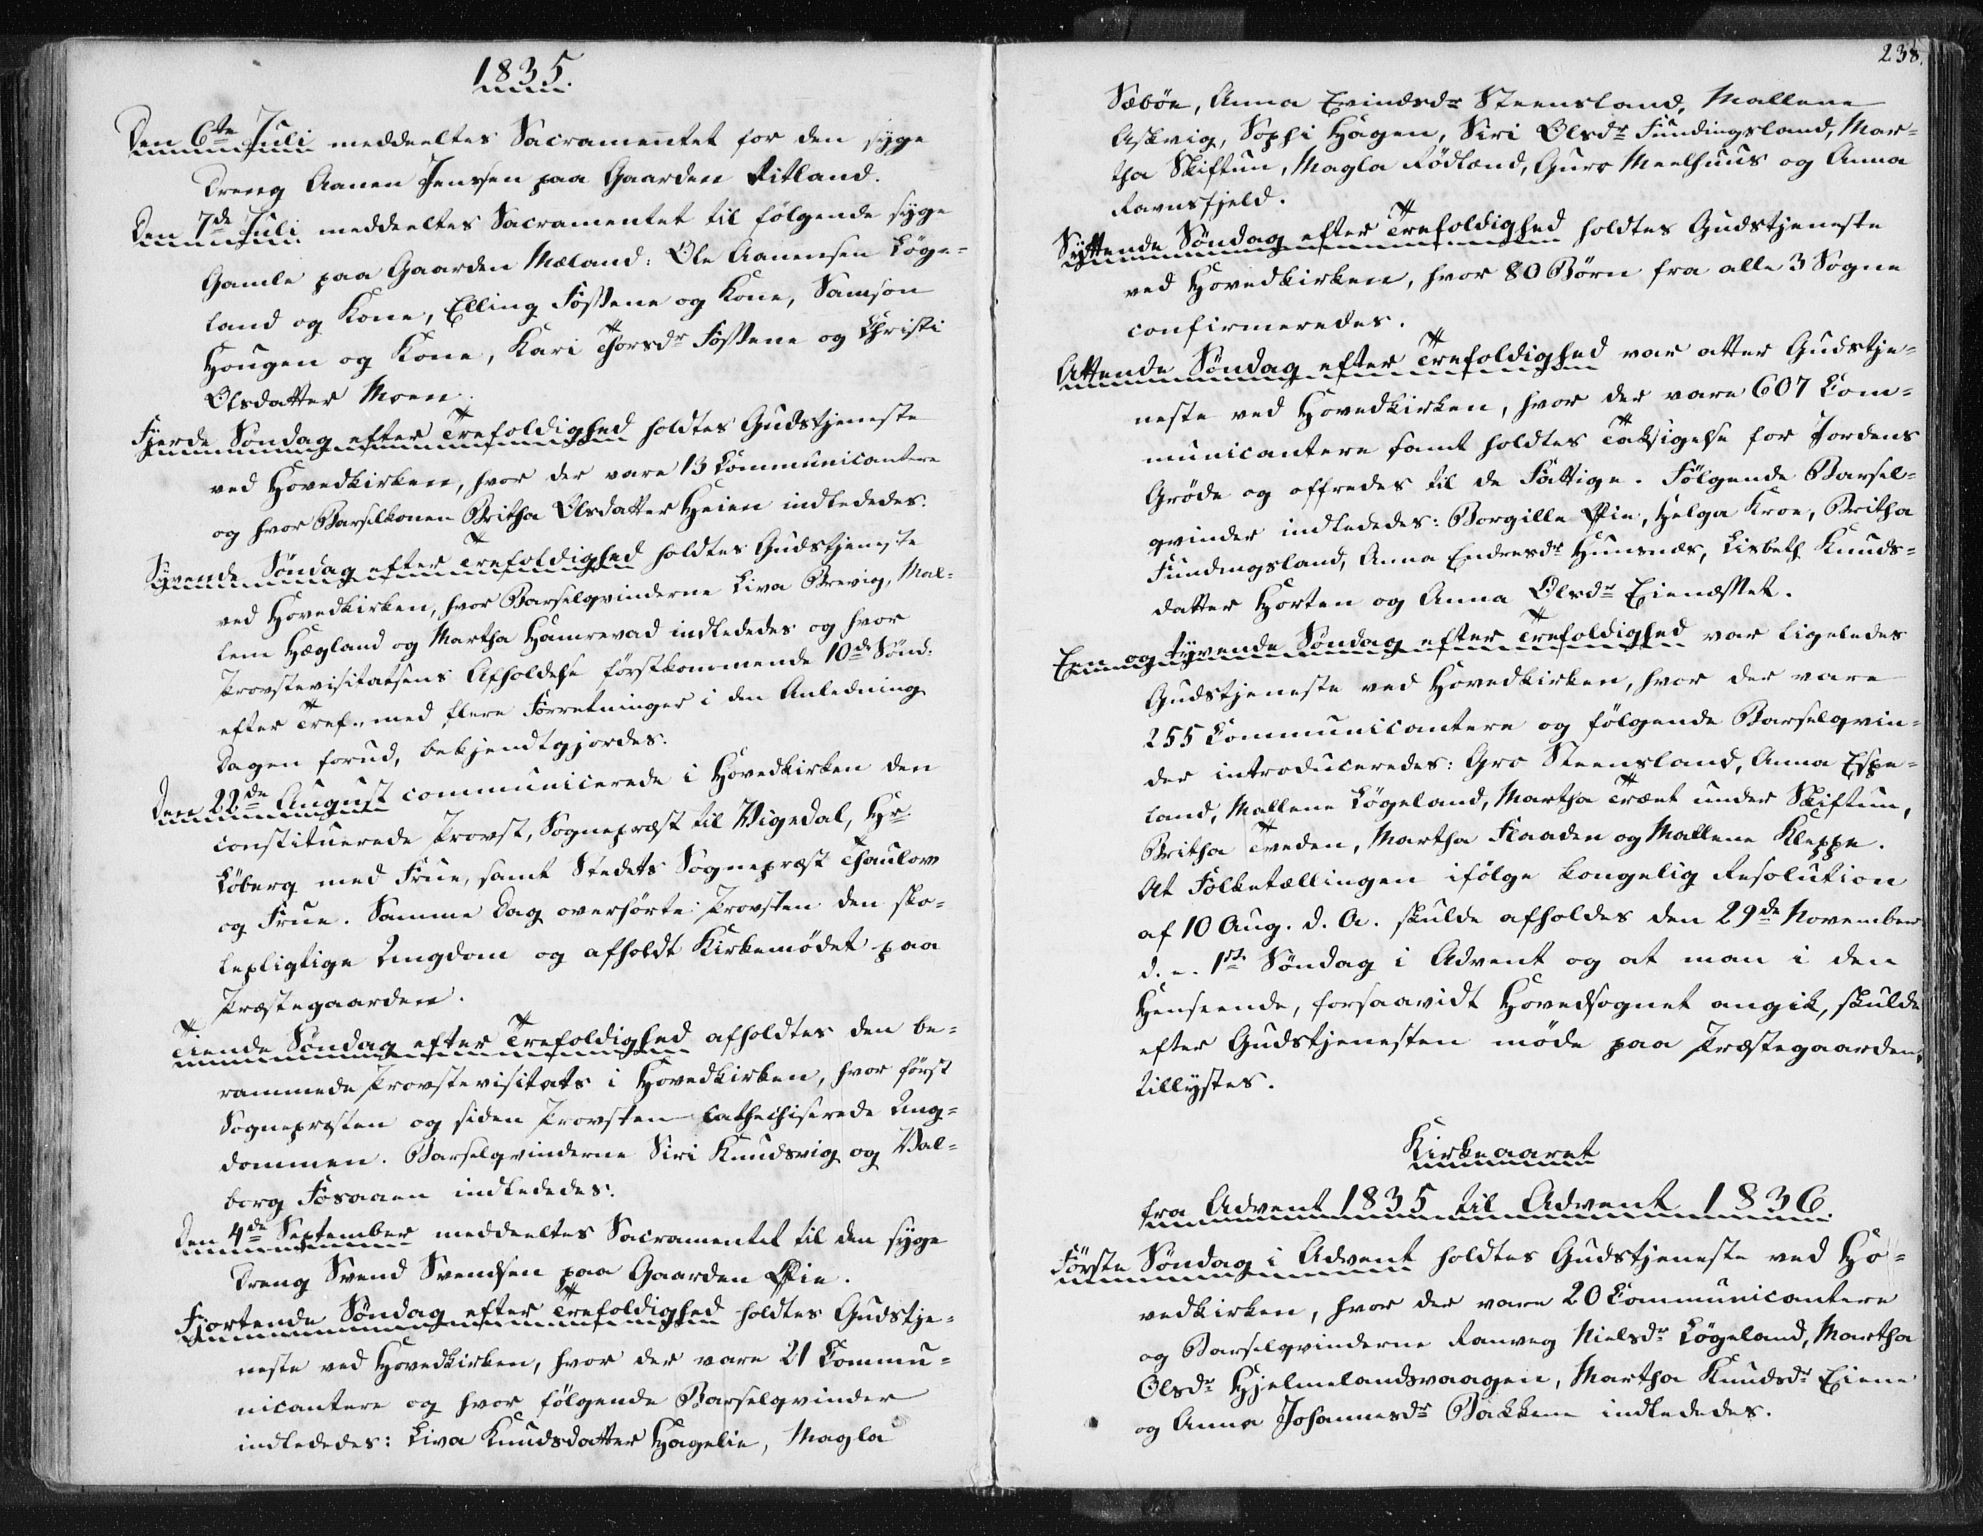 1835.
Den 6te Juli meddeeltes Sacramentet for den syge
Dreng Aanen Jenssen paa Gaarden Ritland.
Den 7de Juli meddeeltes Sacramentet til følgende syge
Gamle paa Gaarden Mæland: Ole Aanensen Løge-
land og Kone, Elling Fossene og Kone, Samson
Hougen og Kone, Kari Thorsdr Fossene og Christi
Olsdatter Moen.
Fjerde Søndag efter Trefoldighed holdtes Gudstjeneste
ved Hovedkirken, hvor der vare 13 Communicantere
og hvor Barselkonen Britha Olsdatter Heien indlededes.
Syvende Søndag efter Trefoldighed holdtes Gudstjeneste
ved Hovedkirken, hvor Barselqvinderne Liva Brevig, Mal-
lene Hægland og Martha Hamrevad indlededes og hvor
Provstevisitatsens Afholdelse førstkommende 10de Sønd.
efter Tref. med flere Forretninger i den Anledning
Dagen forud, bekjendtgjordes.
Den 22de August communicerede i Hovedkirken den
constituerede Provst, Sognepræst til Vigedal, Hr
Løberg med Frue, samt Stedets Sognepræst Thaulow
og Frue. Samme Dag overhørte Provsten den sko-
lepligtige Ungdom og afholdt Kirkemødet paa
Præstegaarden.
Tiende Søndag efter Trefoldighed afholdtes den be-
rammede Provstevisitats i Hovedkirken, hvor først
Sognepræsten og siden Provsten cathechiserede Ung-
dommen. Barselqvinderne Siri Knudsvig og Val-
borg Fosaaen indlededes.
Den 4de September meddeeltes Sacramentet til den syge
Dreng Svend Svendsen paa Gaarden Øie.
Fjortende Søndag efter Trefoldighed holdtes Gudstje-
neste ved Hovedkirken, hvor der vare 21 Commu-
nicantere og hvor følgende Barselqvinder
indlededes: Liva Knudsdatter Hagelie, Magla
238.
Sæbøe, Anna Evindsdr Steensland, Mallene
Askvig, Sophi Hagen, Siri Olsdr Fundingsland, Mar-
tha Skiftun, Magla Rødland, Guro Meelhuus og Anna
Ravnsfjeld.
Syttende Søndag efter Trefoldighed holdtes Gudstjeneste
ved Hovedkirken, hvor 80 Børn fra alle 3 Sogne
confirmeredes.
Attende Søndag efter Trefoldighed var atter Gudstje-
neste ved Hovedkirken, hvor der vare 607 Com-
municantere samt holdtes Taksigelse for Jordens
Grøde og offredes til de Fattige. Følgende Barsel-
qvinder indlededes: Borgille Øie, Helga Kroe, Britha
Fundingsland, Anna Endresdr Hunsnæs, Lisbeth Knuds-
datter Horten og Anna Olsdr Eiendstet.
Een og tyvende Søndag efter Trefoldighed var ligeledes
Gudstjeneste ved Hovedkirken, hvor der vare
255 Communicantere og følgende Barselqvin-
der introduceredes: Gro Steensland, Anna Espe-
land, Mallene Løgeland, Martha Træet under Skiftun,
Britha Tveden, Martha Flaaden og Mallene Kleppe.
At Folketællingen ifølge kongelig Resolution
af 10 Aug. d. A. skulde afholdes den 29de November
d. e. 1ste Søndag i Advent og at man i den
Henseende, forsaavidt Hovedsognet angik, skulde
efter Gudstjenesten møde paa Præstegaarden,
tillystes.
Kirkeaaret
fra Advent 1835 til Advent 1836.
Første Søndag i Advent holdtes Gudstjeneste ved Ho-
vedkirken, hvor der vare 20 Communicantere
og Barselqvinderne Ranveg Nielsdr Løgeland, Martha
Olsdr Hjelmelandsvaagen, Martha Knudsdr Eiene
og Anna Johannesdr Bakken indlededes.